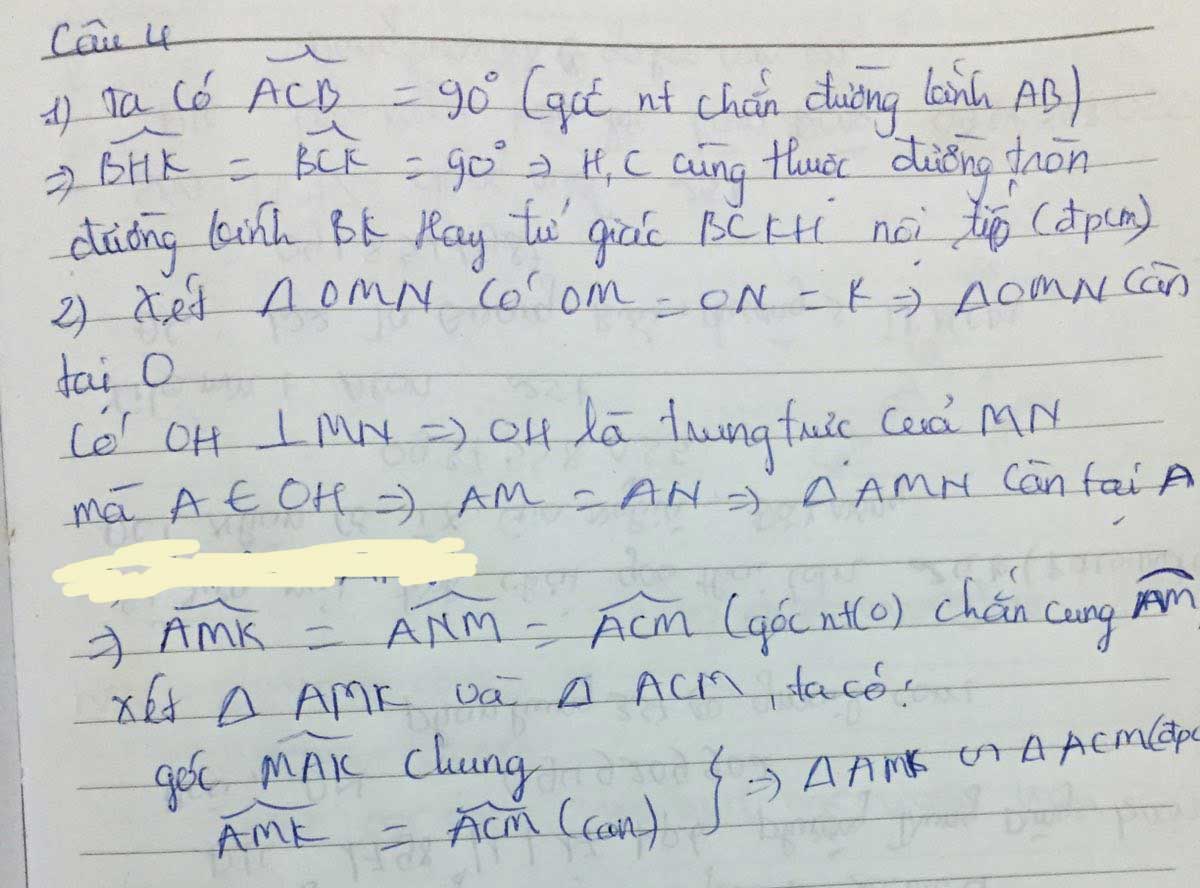 Câu 4
1) Ta có ACB = 90° (góc nt chắn đường kính AB)
=> BHK = BCK = 90° => H, C cùng thuộc đường tròn
đường kính BK Hay tứ giác BCKH nội tiếp (đpcm)
2) Xét Δ OMN có OM = ON = R => Δ OMN cân
tại O
Có OH ⊥ MN => OH là trung trực của MN
mà A ∈ OH => AM = AN => Δ AMN cân tại A
=> AMK = ANM = ACM (góc nt(O) chắn cung AM
xét Δ AMK và Δ ACM, ta có:
góc MAK chung
AMK = ACM (cmt) } => Δ AMK ∽ Δ ACM (đpc